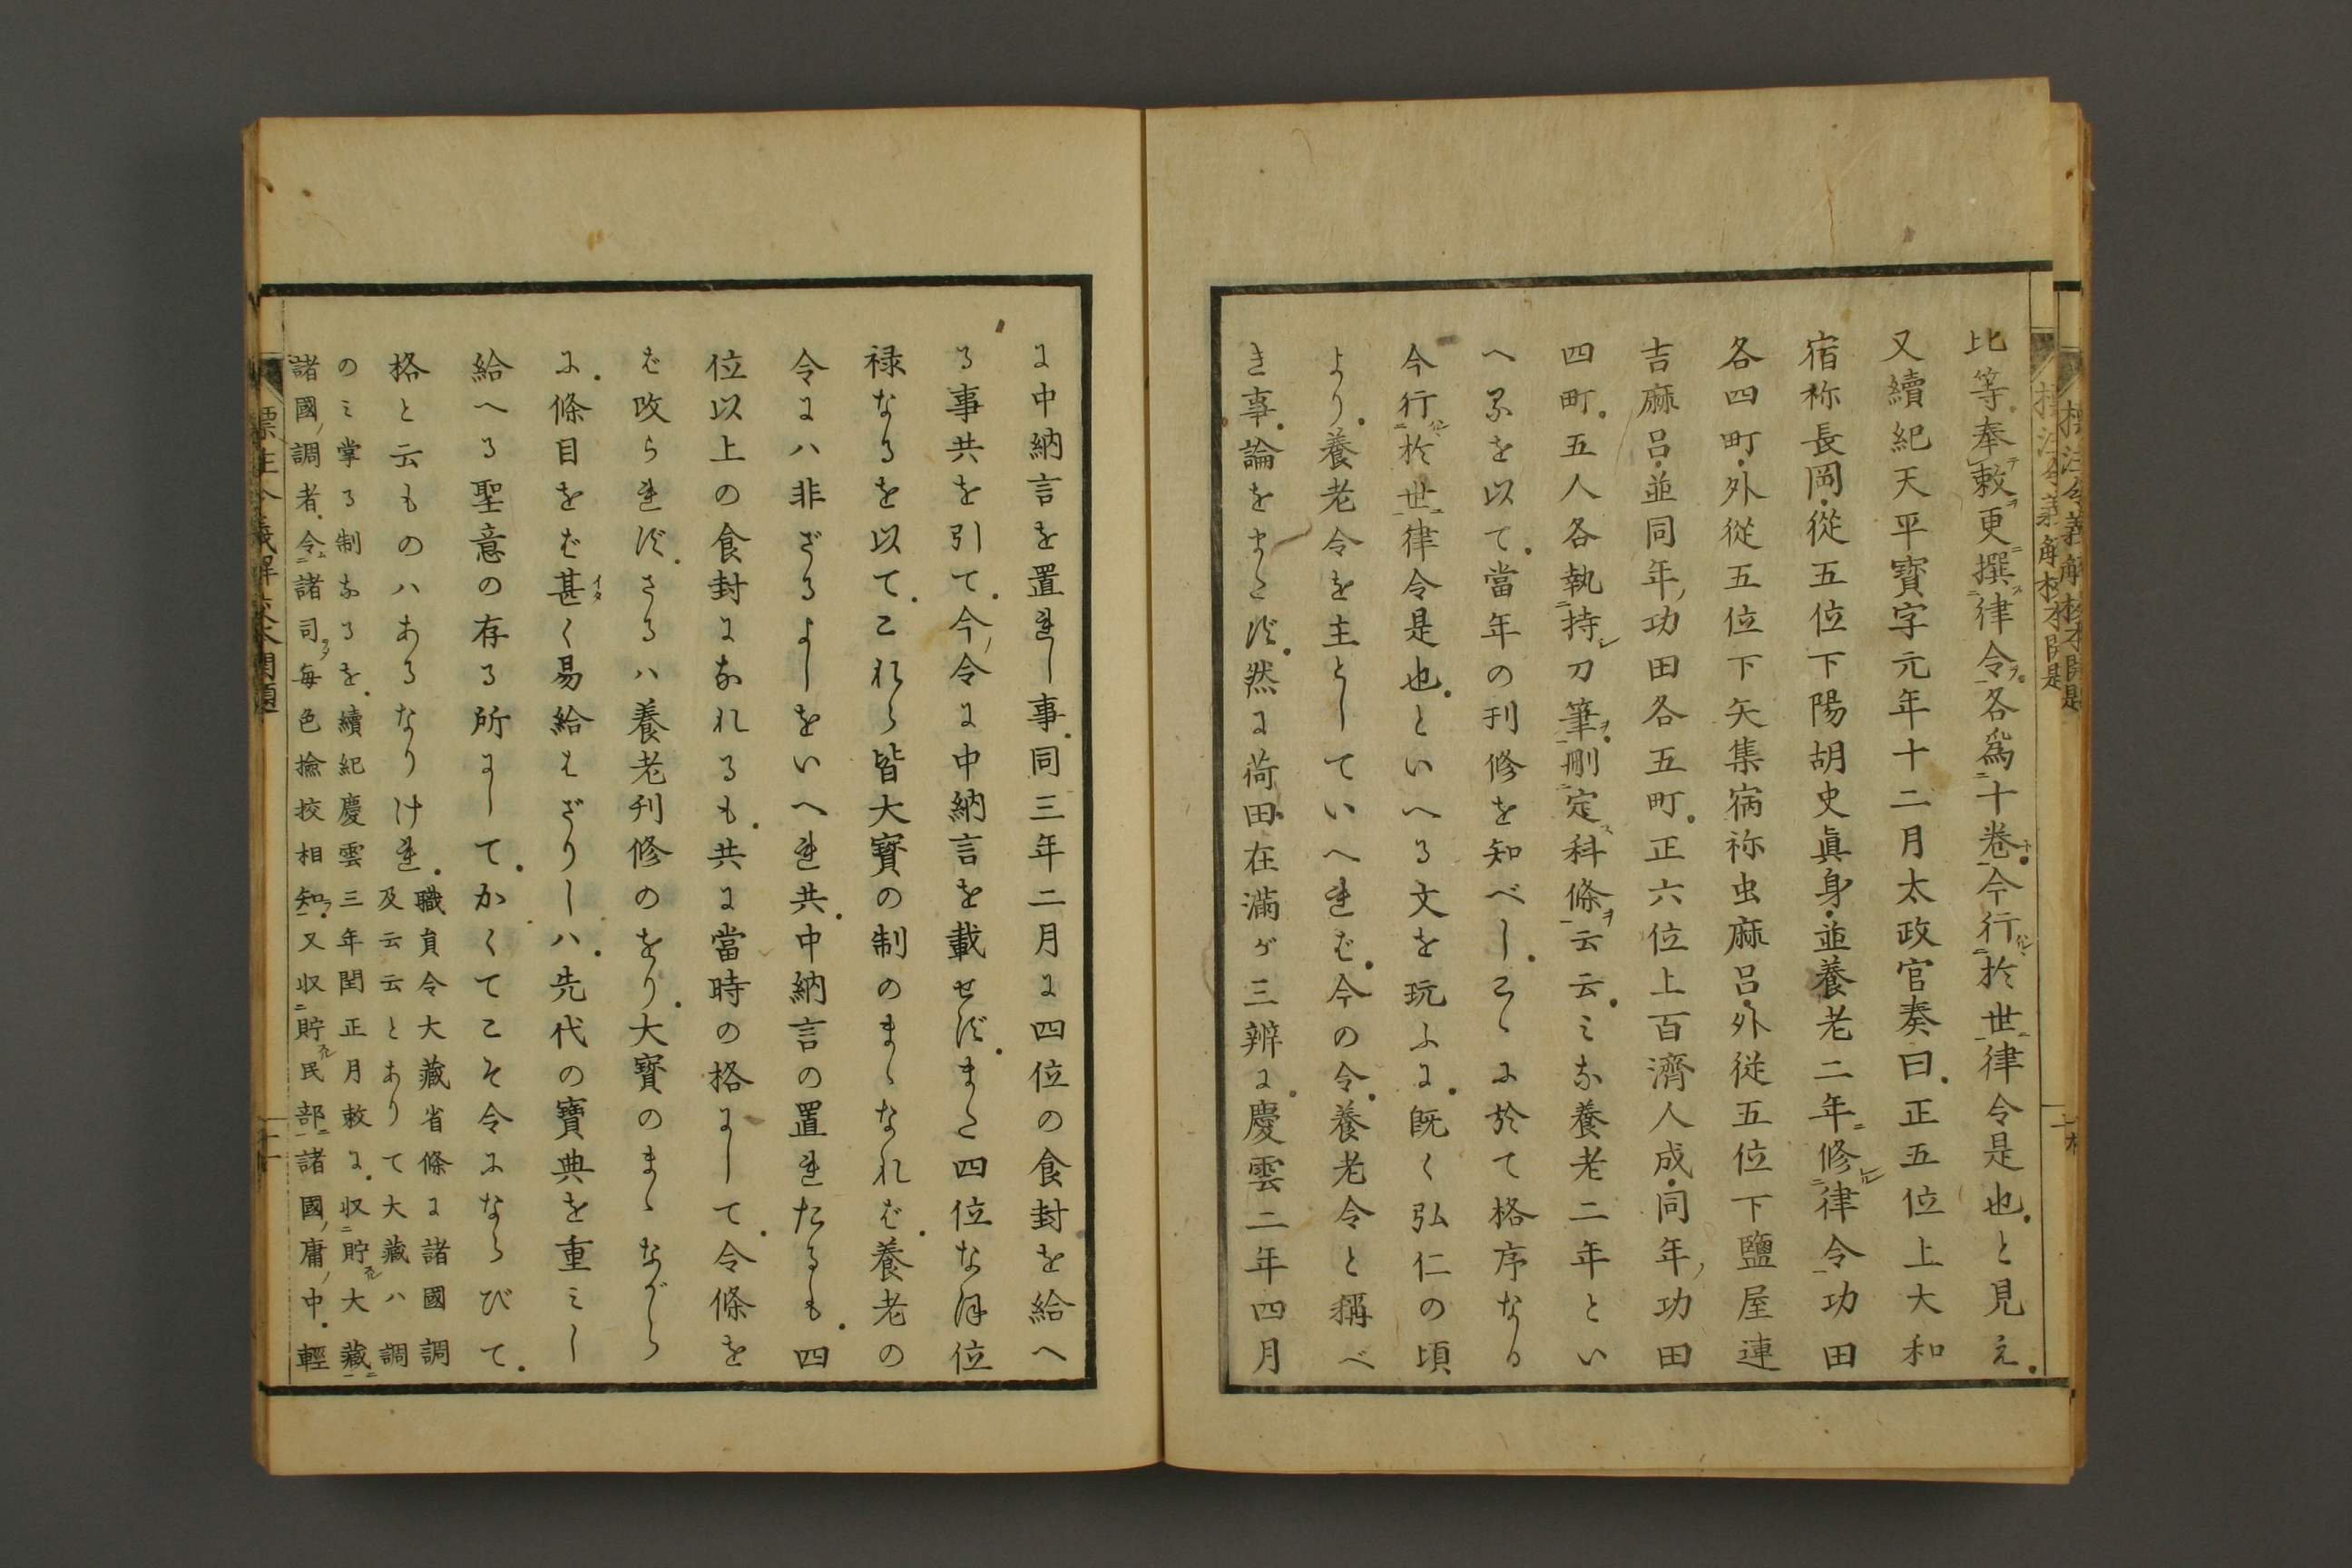 比等。奉敕更撰律令。各爲十卷。今行於世律令是也。と見え。
又續紀天平寶字元年十二月太政官奏曰。正五位上大和
宿祢長岡。從五位下陽胡史眞身。並養老二年修律令功田
各四町。外從五位下矢集宿祢虫麻呂。外從五位下鹽屋連
吉麻呂。並同年功田各五町。正六位上百濟人成。同年功田
四町。五人各執持刀筆。刪定科條云云。ミな養老二年とい
へるを以て。當年の刊修を知べし。こゝに於て格序なる
今行於世律令是也。といへる文を玩ふに。既く弘仁の頃
より。養老令を主としていへれば。今の令。養老令と稱べ
き事。論をまたず。然に荷田在滿が三辨に。慶雲二年四月
に中納言を置れし事。同三年二月に四位の食封を給へ
る事共を引て。今令に中納言を載せず。また四位なほ位
禄なるを以て。これら皆大寶の制のまゝなれば。養老の
令にハ非ざるよしをいへれ共。中納言の置れたるも。四
位以上の食封になれるも。共に當時の格にして。令條を
ば改られず。さるハ養老刊修のをり。大寶のまゝながら
に。條目をば甚く易給はざりしハ。先代の寶典を重ミし
給へる聖意の存る所にして。かくてこそ令にならびて。
格と云ものハあるなりけれ。
職員令大藏省條に諸國調
及云云とありて大藏ハ調
のミ掌る制なるを。續紀慶雲三年閏正月敕に。収貯大藏
諸國調者。令諸司每色撿挍相知。又収貯民部諸國庸中。輕
標注令義解挍本開題